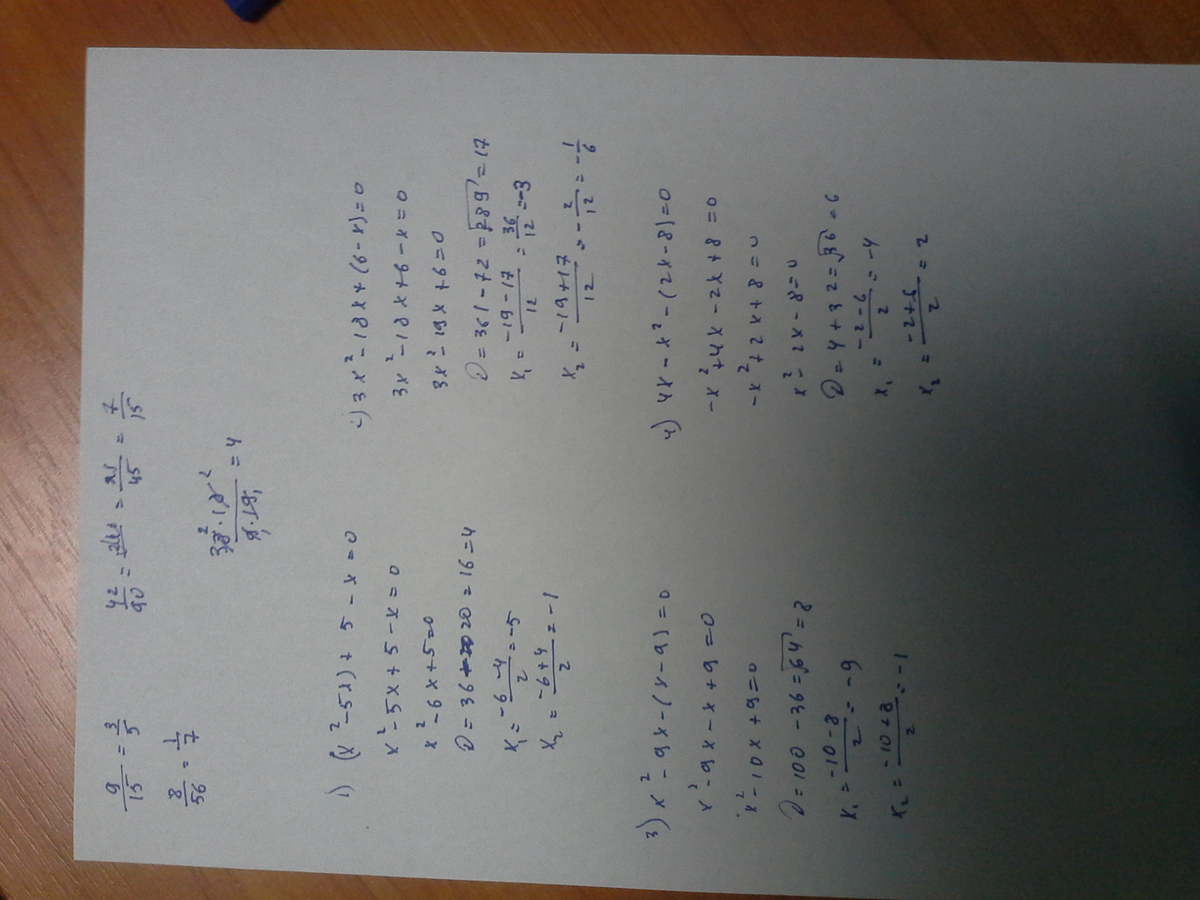 9/15 = 3/5
8/56 = 1/7
42/90 = 21/45 = 7/15
= 4
1) (x² - 5x) + 5 - x = 0
x² - 5x + 5 - x = 0
x² - 6x + 5 = 0
D = 36 - 20 = 16 = 4
x₁ = (-6 - 4)/2 = -5
x₂ = (-6 + 4)/2 = -1
2) 3x² - 18x + (6 - x) = 0
3x² - 18x + 6 - x = 0
3x² - 19x + 6 = 0
D = 361 - 72 = √289 = 17
x₁ = (-19 - 17)/12 = 36/12 = -3
x₂ = (-19 + 17)/12 = -2/12 = -1/6
3) x² - 9x - (x - 9) = 0
x² - 9x - x + 9 = 0
x² - 10x + 9 = 0
D = 100 - 36 = √64 = 8
x₁ = (-10 - 8)/2 = -9
x₂ = (-10 + 8)/2 = -1
4) 4x - x² - (2x - 8) = 0
-x² + 4x - 2x + 8 = 0
-x² + 2x + 8 = 0
x² - 2x - 8 = 0
D = 4 + 32 = √36 = 6
x₁ = (-2 - 6)/2 = -4
x₂ = (-2 + 6)/2 = 2